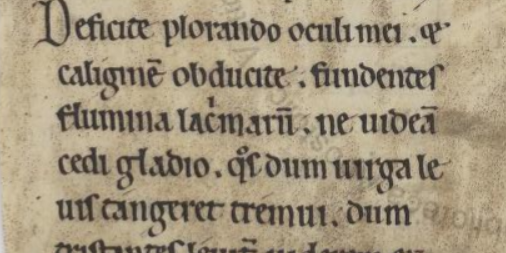 Deficite plorando oculi mei . &
caliginē obducite . fundentes
flumina lac̄marū . ne uideā
cedi gladio . q̊s dum uirga le
uiſ tangeret tremui . dum